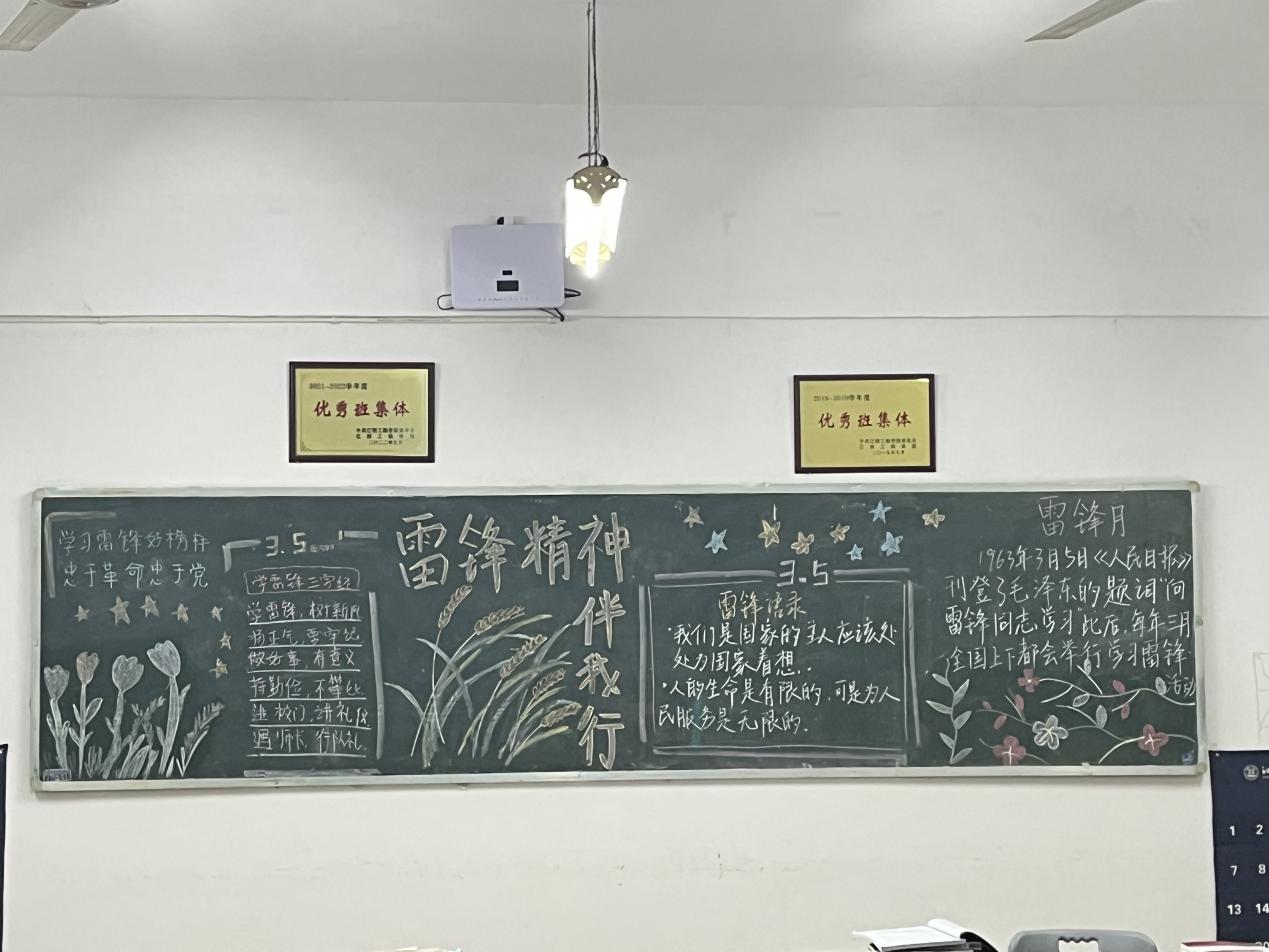 2021-2022学年度
优秀班集体
二〇二二年九月
2018-2019学年度
优秀班集体
二〇一九年九月
学习雷锋好榜样
忠于革命忠于党
3.5
学雷锋三字经
学雷锋,树新风
扬正气,要牢记
做好事,有意义
持勤俭,不攀比
进校门,讲礼仪
遇师长,行队礼.
雷锋精神
伴我行
3.5
雷锋语录
·我们是国家的主人应该处
处为国家着想..
·人的生命是有限的,可是为人
民服务是无限的.
雷锋月
1963年3月5日《人民日报》
刊登了毛泽东的题词"向
雷锋同志学习"此后,每年三月
全国上下都会举行学习雷锋
活动
1 2
7 8
13 14